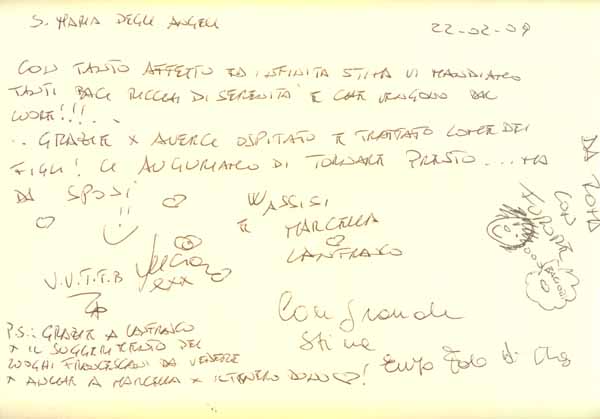 S. MARIA DEGLI ANGELI
22-02-09
CON TANTO AFFETTO ED INFINITA STIMA VI MANDIAMO
TANTI BACI RICCHI DI SERENITÀ E CHE VENGONO DAL
CUORE!!!..
.. GRAZIE X AVERCI OSPITATO E TRATTATO COME DEI
FIGLI! CI AUGURIAMO DI TORNARE PRESTO... MA
DA SPOSI
!!
W ASSISI
E MARCELLA
LANFRANCO
V.V.T.T.B
P.S.: GRAZIE A LANFRANCO
X IL SUGGERIMENTO DEI
LUOGHI FRANCESCANI DA VEDERE
X ANCHE A MARCELLA X IL TENERO
Con grande
Stima
Enzo
DA ROMA
CON